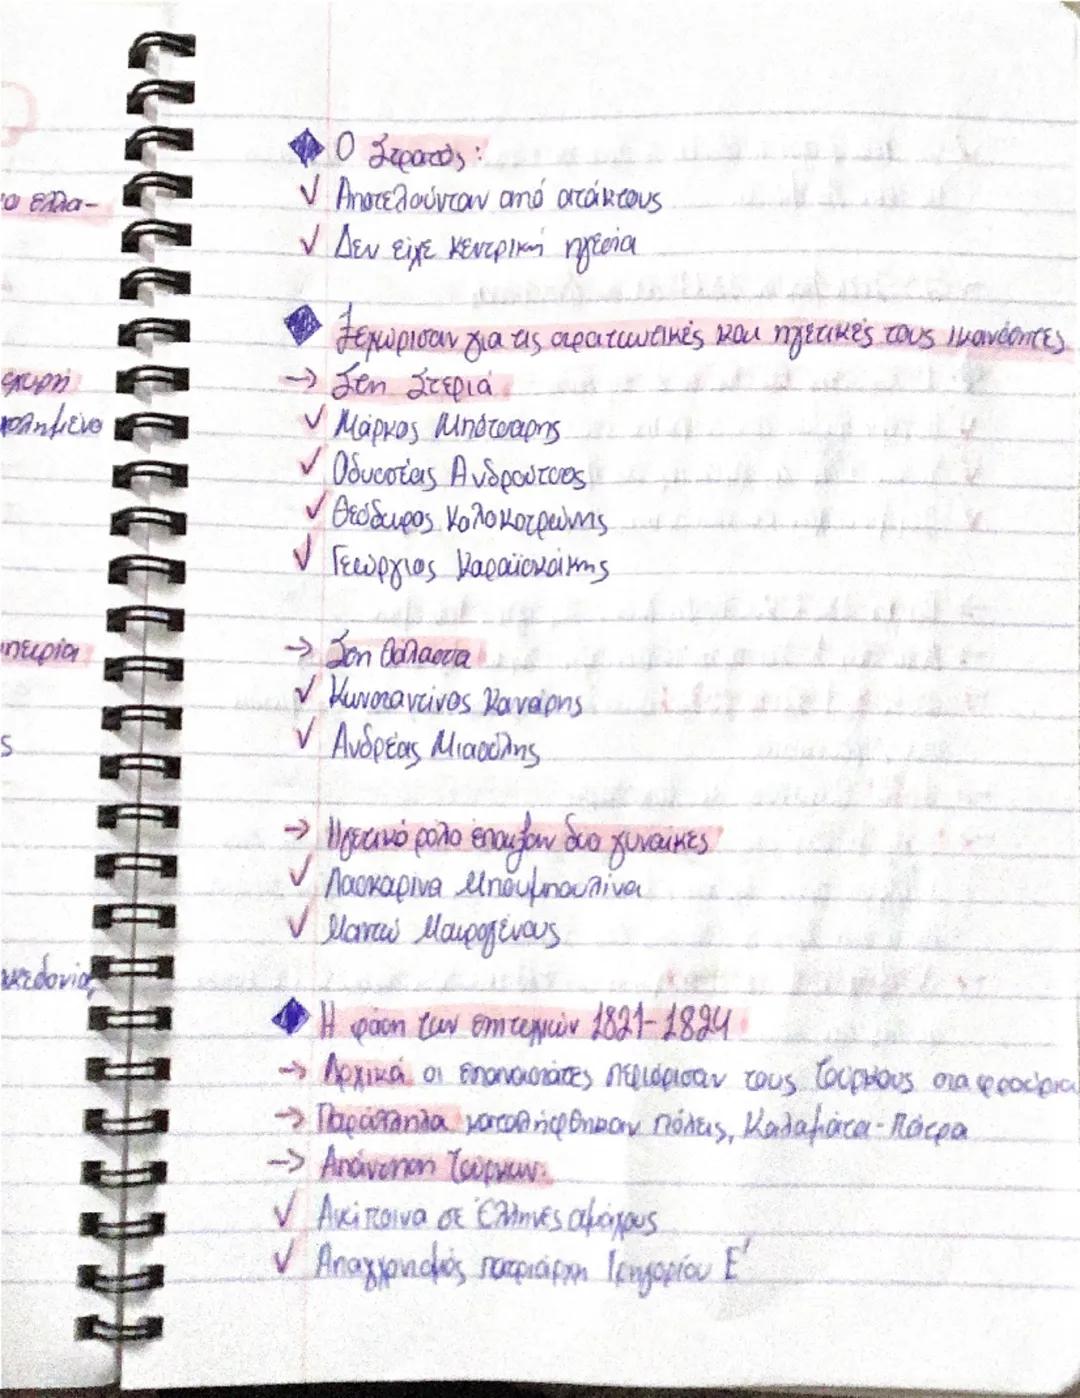 α ελλα-
πειρία
ς
ακεδονίας
Ο Στρατός:
Αποτελούνταν από ατάκτους
Δεν είχε κεντρική ηγεσία
Ξεχώρισαν για τις στρατιωτικές και ηγετικές τους ικανότητες
→ Στη Στεριά
✓ Μάρκος Μπότσαρης
✓ Οδυσσέας Ανδρούτσος
✓ Θεόδωρος Κολοκοτρώνης
✓ Γεώργιος Καραϊσκάκης
→ Στη θάλασσα
✓ Κωνσταντίνος Κανάρης
✓ Ανδρέας Μιαούλης
→ Ηγετικό ρόλο έπαιξαν δυο γυναίκες
✓ Λασκαρίνα Μπουμπουλίνα
✓ Μαντώ Μαυρογένους
Η φάση των επιτυχιών 1821-1824
→ Αρχικά οι επαναστάτες περιόρισαν τους Τούρκους στα φρούρια
→ Παράλληλα καταλήφθηκαν πόλεις, Καλαμάτα - Πάτρα
→ Απάντηση Τούρκων:
✓ Αντίποινα σε Έλληνες αμάχους
✓ Απαγχονισμός πατριάρχη Γρηγορίου Ε'